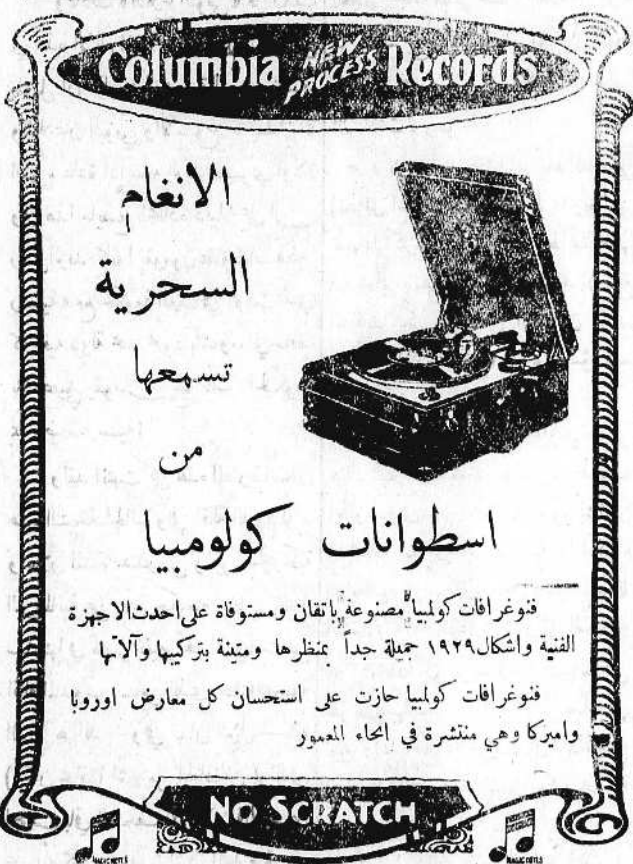 Columbia NEW PROCESS Records
الانغام
السحرية
تسمعها
من
اسطوانات كولومبيا
فنوغرافات كولمبيا مصنوعة باتقان ومستوفاة على احدث الاجهزة
الفنية واشكال ١٩٢٩ جميلة جداً بمنظرها ومتينة بتركيبها وآلاتها
فنوغرافات كولمبيا حازت على استحسان كل معارض اوروبا
واميركا وهي منتشرة في انحاء المعمور
NO SCRATCH
MAGIC NOTES
MAGIC NOTES